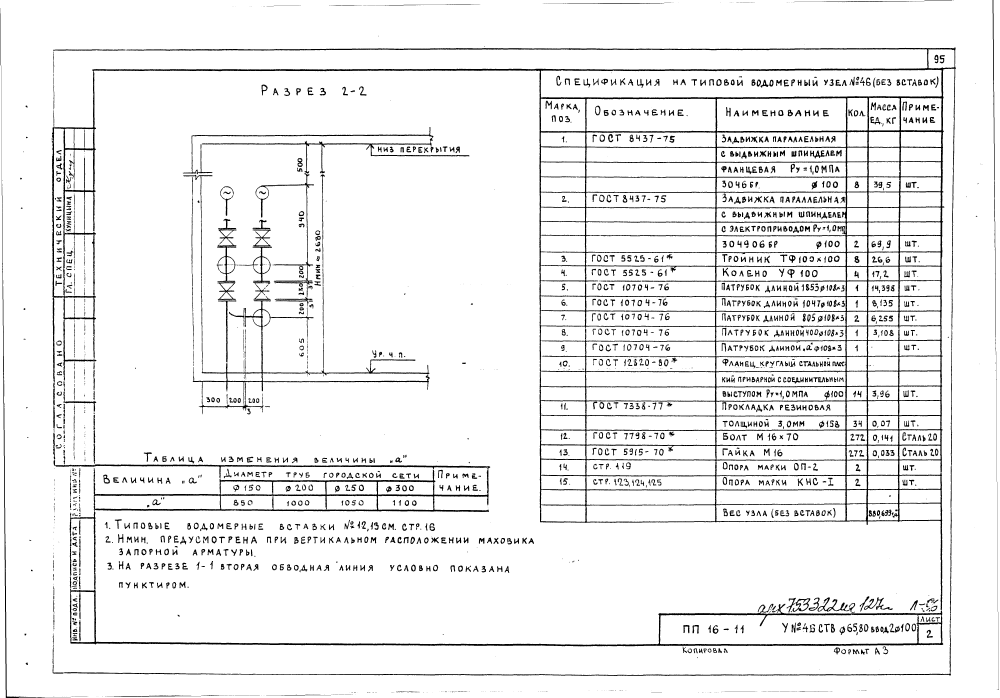 95
РАЗРЕЗ 2-2
НИЗ ПЕРЕКРЫТИЯ
500
940
Нмин = 2680
200
200 230 200
3
3
605
Ур. ч. п.
300 200 200
3
ТАБЛИЦА ИЗМЕНЕНИЯ ВЕЛИЧИНЫ „а"
ВЕЛИЧИНА „а" ДИАМЕТР ТРУБ ГОРОДСКОЙ СЕТИ ПРИМЕЧАНИЕ.
ø150 ø200 ø250 ø300
„а" 850 1000 1050 1100
1. ТИПОВЫЕ ВОДОМЕРНЫЕ ВСТАВКИ №12,19 СМ. СТР. 16
2. НМИН. ПРЕДУСМОТРЕНА ПРИ ВЕРТИКАЛЬНОМ РАСПОЛОЖЕНИИ МАХОВИКА
ЗАПОРНОЙ АРМАТУРЫ.
3. НА РАЗРЕЗЕ 1-1 ВТОРАЯ ОБВОДНАЯ ЛИНИЯ УСЛОВНО ПОКАЗАНА
ПУНКТИРОМ.
СПЕЦИФИКАЦИЯ НА ТИПОВОЙ ВОДОМЕРНЫЙ УЗЕЛ №46 (БЕЗ ВСТАВОК)
МАРКА, ПОЗ. ОБОЗНАЧЕНИЕ. НАИМЕНОВАНИЕ КОЛ. МАССА ЕД, КГ ПРИМЕЧАНИЕ
1. ГОСТ 8437-75 ЗАДВИЖКА ПАРАЛЛЕЛЬНАЯ
С ВЫДВИЖНЫМ ШПИНДЕЛЕМ
ФЛАНЦЕВАЯ Ру=1,0МПА
30Ч6БР ø100 8 39,5 ШТ.
2. ГОСТ 8437-75 ЗАДВИЖКА ПАРАЛЛЕЛЬНАЯ
С ВЫДВИЖНЫМ ШПИНДЕЛЕМ
С ЭЛЕКТРОПРИВОДОМ Ру=1,0МПА
30Ч906БР ø100 2 69,9 ШТ.
3. ГОСТ 5525-61* ТРОЙНИК ТФ 100×100 8 26,6 ШТ.
4. ГОСТ 5525-61* КОЛЕНО УФ 100 4 17,2 ШТ.
5. ГОСТ 10704-76 ПАТРУБОК ДЛИНОЙ 1853 ø108×3 1 14,398 ШТ.
6. ГОСТ 10704-76 ПАТРУБОК ДЛИНОЙ 1047 ø108×3 1 8,135 ШТ.
7. ГОСТ 10704-76 ПАТРУБОК ДЛИНОЙ 805 ø108×3 2 6,255 ШТ.
8. ГОСТ 10704-76 ПАТРУБОК ДЛИНОЙ 400 ø108×3 1 3,108 ШТ.
9. ГОСТ 10704-76 ПАТРУБОК ДЛИНОЙ „а" ø108×3 1 ШТ.
10. ГОСТ 12820-80* ФЛАНЕЦ КРУГЛЫЙ СТАЛЬНОЙ ПЛОС
КИЙ ПРИВАРНОЙ С СОЕДИНИТЕЛЬНЫМ
ВЫСТУПОМ Ру=1,0МПА ø100 14 3,96 ШТ.
11. ГОСТ 7338-77* ПРОКЛАДКА РЕЗИНОВАЯ
ТОЛЩИНОЙ 3,0ММ ø158 34 0,07 ШТ.
12. ГОСТ 7798-70* БОЛТ М16×70 272 0,141 СТАЛЬ 20
13. ГОСТ 5915-70* ГАЙКА М16 272 0,033 СТАЛЬ 20
14. СТР. 119 ОПОРА МАРКИ ОП-2 2 ШТ.
15. СТР. 123,124,125 ОПОРА МАРКИ КНС-I 2 ШТ.
ВЕС УЗЛА (БЕЗ ВСТАВОК)
ПП 16-11 У №46 СТВ ø65,80 ввод 2ø100 ЛИСТ 2
КОПИРОВАЛ ФОРМАТ А3
СОГЛАСОВАНО
ТЕХНИЧЕСКИЙ ОТДЕЛ
ГЛ. СПЕЦ.
ИНВ.№ПОДЛ. ПОДПИСЬ И ДАТА